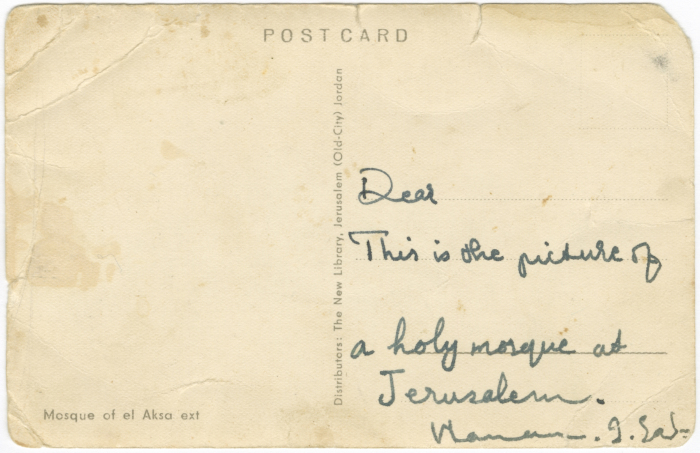 POST CARD
Mosque of el Aksa ext
Distributors: The New Library, Jerusalem (Old-City) Jordan
Dear
This is the picture of
a holy mosque at
Jerusalem.